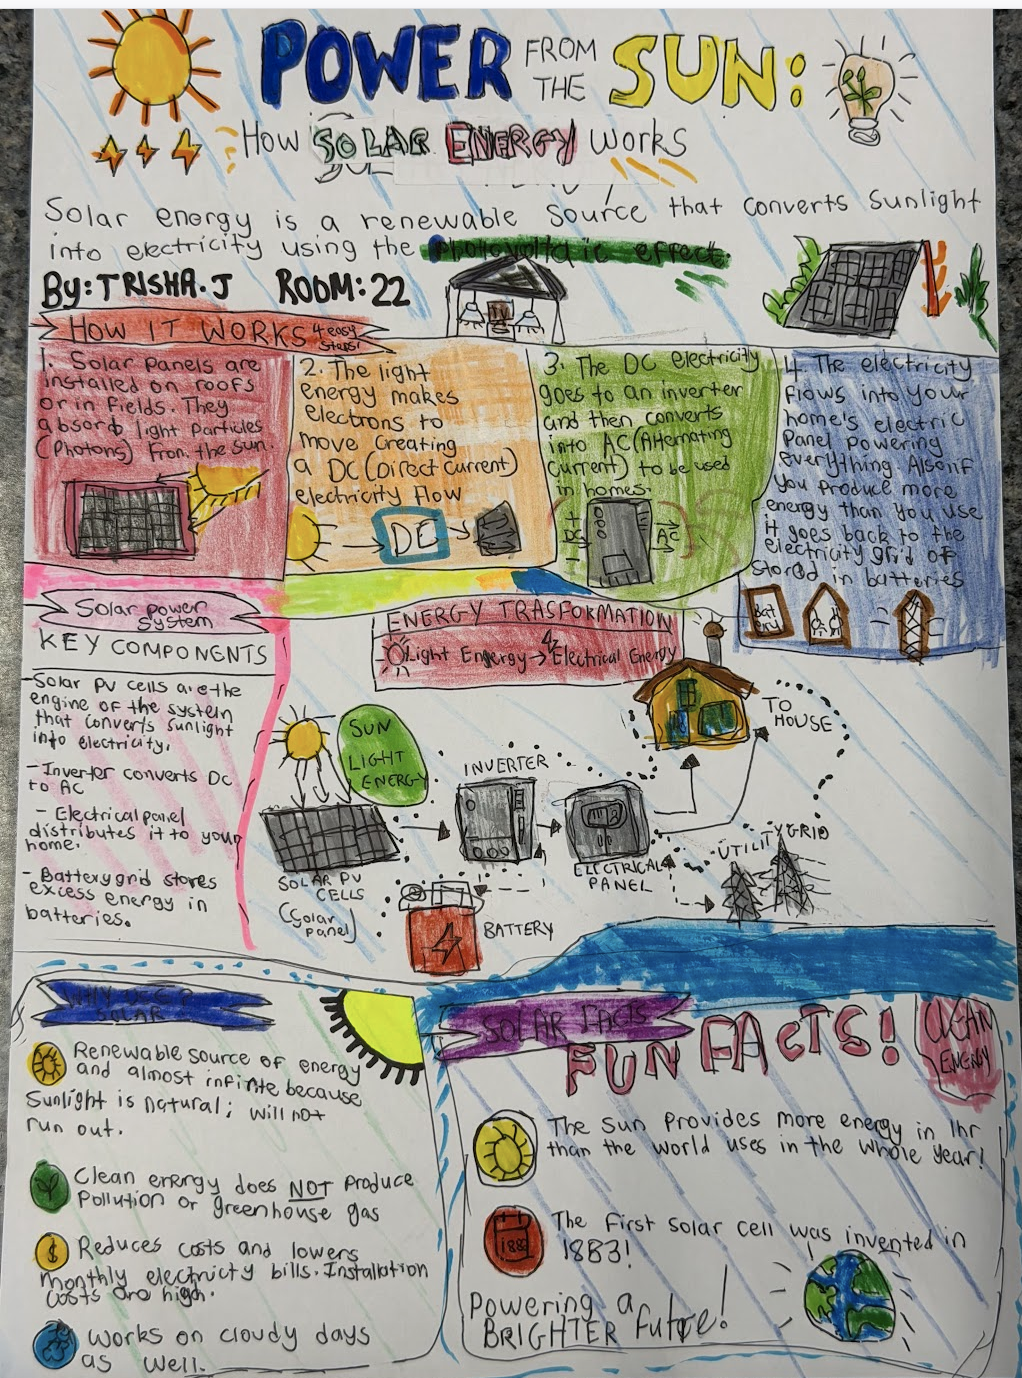 POWER FROM THE SUN:
How SOLAR ENERGY works
Solar energy is a renewable source that converts sunlight
into electricity using the photovoltaic effect.
By: TRISHA.J ROOM: 22
HOW IT WORKS 4 easy steps!
1. Solar Panels are
installed on roofs
or in fields. They
absorb light Particles
(Photons) from the sun.
2. The light
energy makes
electrons to
move creating
a DC (Direct current)
electricity flow
DE
3. The DC electricity
goes to an inverter
and then converts
into AC (Alternating
current) to be used
in homes.
DC
AC
4. The electricity
flows into your
home's electric
Panel Powering
everything. Also if
you produce more
energy than you use
it goes back to the
electricity grid or
stored in batteries
Bat
ery
Solar power
system
KEY COMPONENTS
-Solar PV cells are the
engine of the system
that converts sunlight
into electricity.
- Inverter converts DC
to AC
- Electrical panel
distributes it to your
home.
- Battery grid stores
excess energy in
batteries.
ENERGY TRASFORMATION
Light Engergy → Electrical Energy
SUN
LIGHT
ENERGY
INVERTER
TO
HOUSE
SOLAR PV
CELLS
(Solar
panel)
ELECTRICAL
PANEL
UTILITY GRID
BATTERY
SOLAR
Renewable source of energy
and almost infinite because
Sunlight is natural; will not
run out.
Clean energy does NOT produce
Pollution or greenhouse gas
$
Reduces costs and lowers
monthly electricity bills. Installation
costs are high.
Works on cloudy days
as well.
SOLAR FACTS
FUN FACTS!
CLEAN
ENERGY
The Sun Provides more energy in 1hr
than the world uses in the whole year!
1883
The first solar cell was invented in
1883!
Powering a
BRIGHTER future!